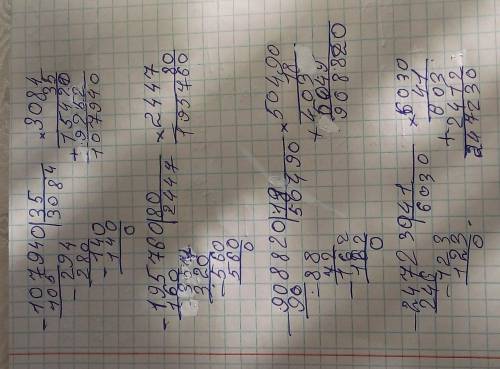 -107940|35
3084
-294
280
-140
140
0
×3084
35
15420
+9252
107940
-195760|80
160|2447
320
-560
560
0
×2447
80
195760
-908820|18
90|50490
-88
-162
162
0
×50490
18
+403
5049
908820
-247230|41
246|6030
-123
123
0
×6030
41
603
+2412
247230